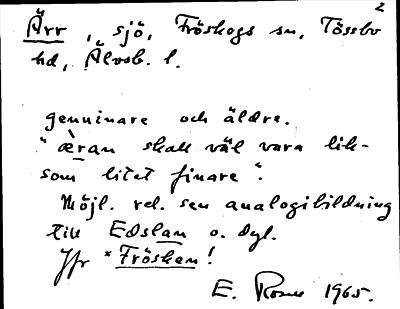 2
Ärr, sjö, Fröskogs sn, Tössbo
hd, Älvsb. l.
genuinare och äldre.
"æ̀ran skall väl vara lik-
som litet finare".
Möjl. rel. sen analogibildning
till Edslan o. dyl.
Jfr *Fröskan!
E. Rosell 1965.